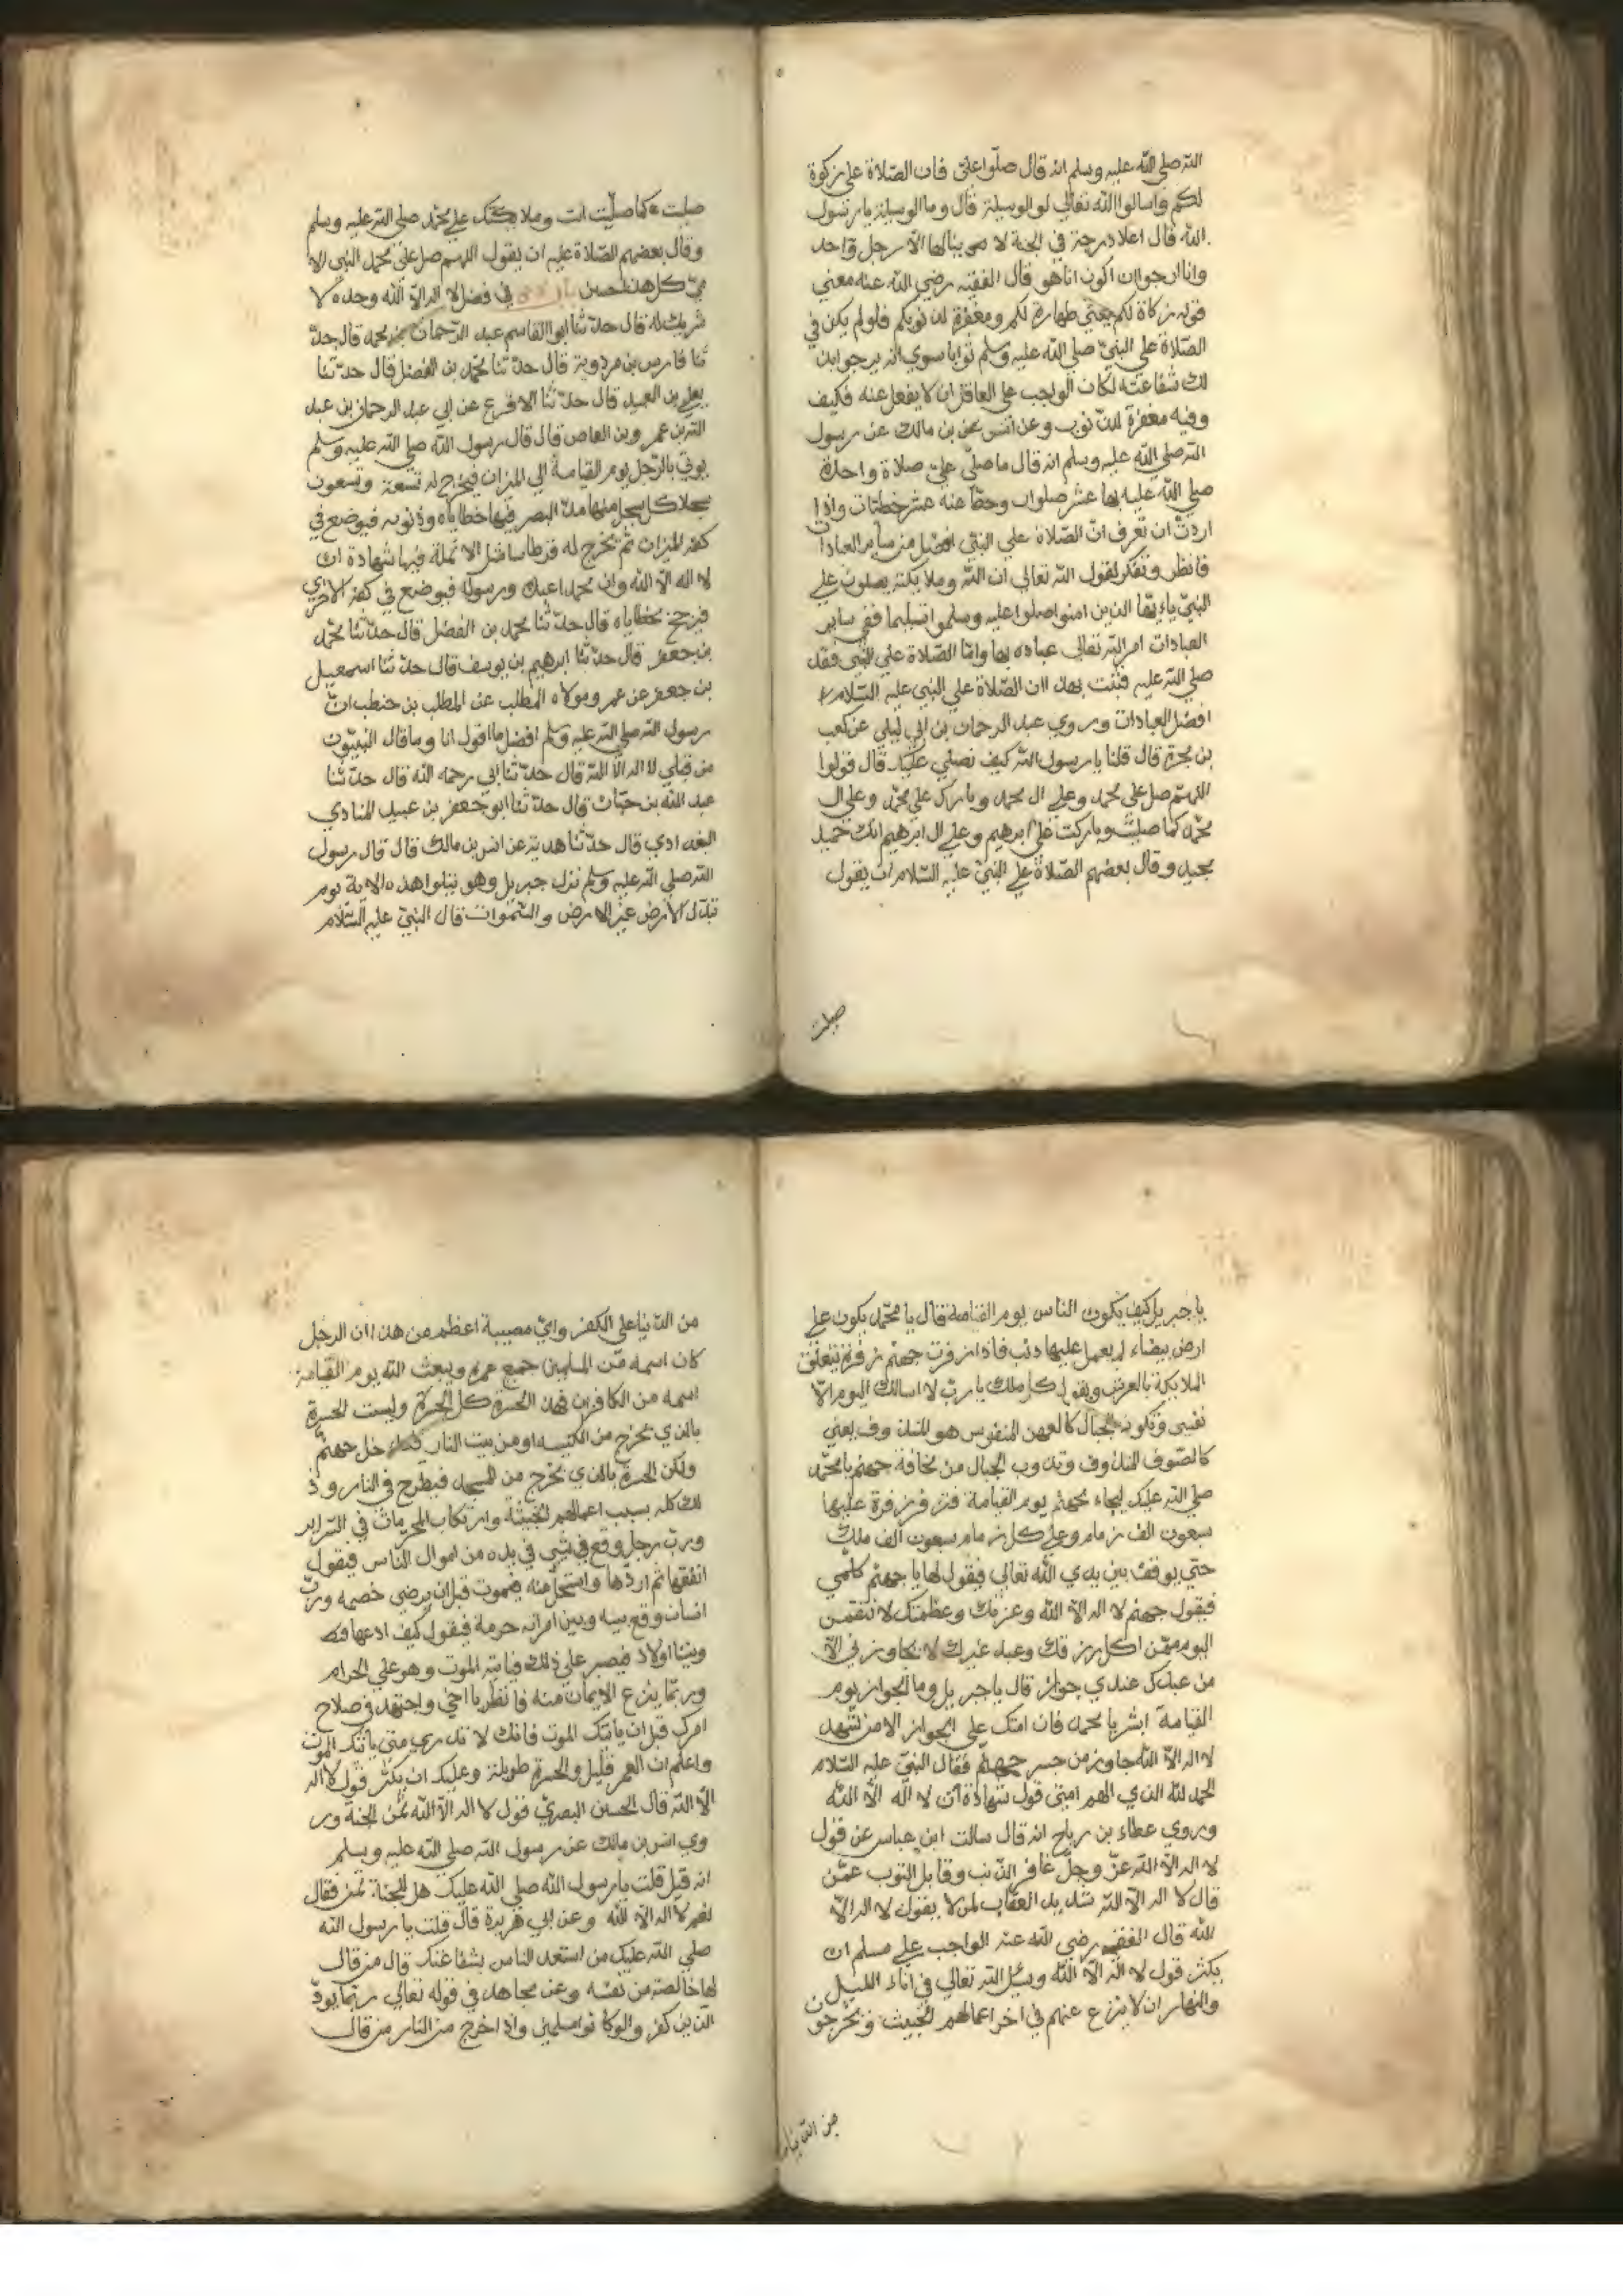 الله صلي الله عليه وسلم انه قال صلوا علي فان الصلاة علي زكوة
لكم واسالوا الله تعالي لي الوسيلة قال وما الوسيلة يا رسول
الله قال اعلا درجة في الجنة لا ينالها الا رجل واحد
وانا ارجوا ان اكون انا هو قال الفقيه رضي الله عنه معني
قوله زكاة لكم يعني طهارة لكم ومغفرة لذنوبكم فلو لم يكن في
الصلاة علي النبي صلي الله عليه وسلم ثوابا سوي انه يرجوا بذ
لك شفاعته لكان الواجب علي العاقل ان لا يغفل عنه فكيف
وفيه مغفرة الذنوب وعن انس بن مالك عن رسول
الله صلي الله عليه وسلم انه قال ما صلي علي صلاة واحدة
صلي الله عليه بها عشر صلوات وحط عنه عشر خطيات واذا
اردت ان تعرف ان الصلاة علي النبي افضل من ساير العبادات
فانظر وتفكر لقول الله تعالي ان الله وملايكته يصلون علي
النبي ياءيها الذين امنوا صلوا عليه وسلموا تسليما ففي ساير
العبادات امر الله تعالي عباده بها واما الصلاة علي النبي فقد
صلي الله عليه فثبت بهذا ان الصلاة علي النبي عليه السلام
افضل العبادات وروي عبد الرحمان بن ابي ليلي عن كعب
بن عجرة قال قلنا يا رسول الله كيف نصلي عليك قال قولوا
اللهم صل علي محمد وعلي ال محمد وبارك علي محمد وعلي ال
محمد كما صليت وباركت علي ابرهيم وعلي ال ابرهيم انك حميد
مجيد وقال بعضهم الصلاة علي النبي عليه السلام ان يقول
صليت
صليت كما صليت انت وملايكتك علي محمد صلي الله عليه وسلم
وقال بعضهم الصلاة عليه ان يقول اللهم صل علي محمد النبي الا
مي كل هذا حسن في فضل لا اله الا الله وحده لا
شريك له قال حدثنا ابوا القاسم عبد الرحمان بن محمد قال حد
ثنا فارس بن مردوية قال حدثنا محمد بن الفضل قال حدثنا
يعلي بن العبيد قال حدثنا الافرع عن ابي عبد الرحمان بن عبد
الله بن عمر وبن العاص قال قال رسول الله صلي الله عليه وسلم
يوتي بالرجل يوم القيامة الي الميزان فيخرج له تسعة وتسعون
سجلا كل سجل منها مد البصر فيها خطاياه وذنوبه فيوضع في
كفة الميزان ثم يخرج له قرطاسا مثل الانملة فيها شهادة ان
لا اله الا الله وان محمدا عبده ورسوله فيوضع في كفة الاخري
فيرجح بخطاياه قال حدثنا محمد بن الفضل قال حدثنا محمد
بن جعفر قال حدثنا ابرهيم بن يوسف قال حدثنا اسمعيل
بن جعفر عن عمر ومولاه المطلب عن المطلب بن حنطب ان
رسول الله صلي الله عليه وسلم افضل ما اقول انا وما قال النبيون
من قبلي لا اله الا الله قال حدثنا ابي رحمه الله قال حدثنا
عبد الله بن حبان قال حدثنا ابو جعفر بن عبيد المنادي
البغدادي قال حدثنا هدبة عن انس بن مالك قال قال رسول
الله صلي الله عليه وسلم نزل جبريل وهو يتلوا هذه الاية يوم
تبدل الارض غير الارض والسموات قال النبي عليه السلام
يا جبريل كيف يكون الناس يوم القيامة قال يا محمد يكون علي
ارض بيضاء لم يعمل عليها ذنب فاذا زفرت جهنم زفرة تتعلق
الملايكة بالعرش ويقول كل ملك يا رب لا اسالك اليوم الا
نفسي وتكون الجبال كالعهن المنفوس هو المندوف يعني
كالصوف المندوف وتذوب الجبال من مخافة جهنم يا محمد
صلي الله عليك ليجاء بجهنم يوم القيامة فتزفر زفرة عليها
سبعون الف زمام وعلي كل زمام سبعون الف ملك
حتي يوقف بين يدي الله تعالي فيقول لها يا جهنم كلمي
فيقول جهنم لا اله الا الله وعزتك وعظمتك لا نتقمن
اليوم ممن اكل رزقك وعبد غيرك لا يجاوزني الا
من عبدك عندي جواز قال يا جبريل وما الجواز يوم
القيامة ابشر يا محمد فان امتك علي الجواز الا من شهد
لا اله الا الله جاوز من جسر جهنم فقال النبي عليه السلام
الحمد لله الذي الهم امتي قول شهادة ان لا اله الا الله
وروي عطاء بن رباح انه قال سالت ابن عباس عن قول
لا اله الا الله عز وجل غافر الذنب وقابل التوب عمن
قال لا اله الا الله شديد العقاب لمن لا يقول لا اله الا
الله قال الفقيه رضي الله عنه الواجب علي مسلم ان
يكثر قول لا اله الا الله ويسئل الله تعالي في اناء الليل
والنهار ان لا ينزع عنهم في اخر اعمالهم الخبيث ويخرجون
من الدنيا
من الدنيا علي الكفر واي مصيبة اعظم من هذا ان الرجل
كان اسمه من المسلمين جمع عمره ويبعث الله يوم القيامة
اسمه من الكافرين فهذه الحسرة كل الحسرة وليست الحسرة
بالذي يخرج من الكنيسه او من بيت النار فيدخل جهنم
ولكن الحسرة بالذي يخرج من المسجد فيطرح في النار وذ
لك كله بسبب اعمالهم الخبيثة وارتكاب المحرمات في السراير
ورب رجل وقع في شي في يده من اموال الناس فيقول
انفقها ثم اردها واستحل منه فيموت قبل ان يرضي خصمه ورب
انسان وقع بينه وبين امراته حرمة فيقول كيف ادعها
وبيننا اولاد فيصبر علي ذلك فياتيه الموت وهو علي الحرام
وربما ينزع الايمان منه فانظر يا اخي واجتهد في صلاح
امرك قبل ان ياتيك الموت فانك لا تدري متي ياتيك الموت
واعلم ان العمر قليل والحسرة طويلة وعليك ان يكثر قول لا اله
الا الله قال الحسن البصري قول لا اله الا الله ثمن الجنة ور
وي انس بن مالك عن رسول الله صلي الله عليه وسلم
انه قيل قلت يا رسول الله صلي الله عليك هل للجنة ثمن فقال
نعم لا اله الا الله وعن ابي هريرة قال قلت يا رسول الله
صلي الله عليك من استعد الناس بشفاعتك قال من قال
لها خالصة من نفسه وعن مجاهد في قوله تعالي ربما يود
الذين كفروا لو كانوا مسلمين واذا اخرج من النار من قال